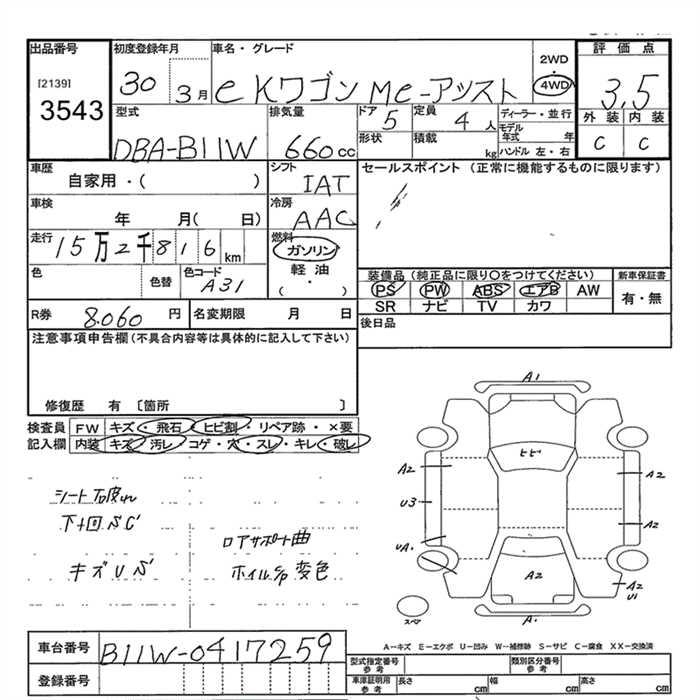 出品番号
[2139]
3543
初度登録年月
30 3月
車名・グレード
eKワゴン Me-アシスト
2WD
4WD
評価点
3.5
外装 内装
C C
型式
DBA-B11W
排気量
660cc
ドア 5
形状
定員 4人
積載 kg
ディーラー・並行
モデル年式 年
ハンドル 左・右
車歴
自家用・( )
シフト
IAT
セールスポイント (正常に機能するものに限ります)
車検
年 月( 日)
冷房
AAC
走行
15万2千816km
燃料
ガソリン
軽油
( ・ )
色
色替
色コード
A31
装備品(純正品に限り○をつけてください)
PS PW ABS エアB AW
SR ナビ TV カワ
新車保証書
有・無
R券 8.060円
名変期限 月 日
後日品
注意事項申告欄(不具合内容等は具体的に記入して下さい)
修復歴 有 〔箇所 〕
検査員記入欄
FW キズ・飛石・ヒビ割・リペア跡・×要
内装 キズ・汚レ・コゲ・穴・スレ・キレ・破レ
シート破れ
下回りSC
キズUS
ロアサポート曲
ホイルC/P変色
A1
ヒビ
A2
A2
U3
A2
UA1
A2
A2
U1
スペア
A1
A-キズ E-エクボ U-凹み W-補修跡 S-サビ C-腐食 XX-交換済
車台番号
B11W-0417259
登録番号
型式指定番号
参考
類別区分番号
参考
車庫証明用
参考
長さ cm
幅 cm
高さ cm